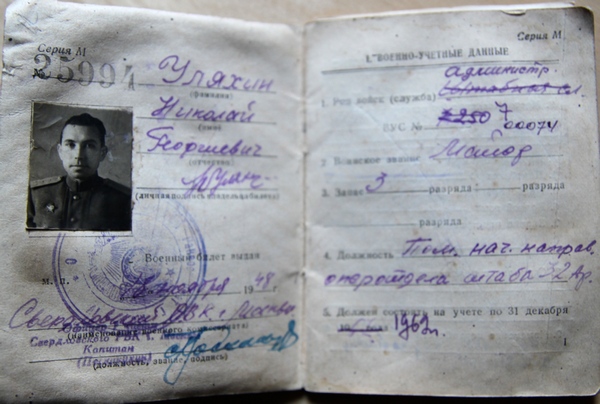 Серия М
№ 35994
Уляхин
(фамилия)
Николай
(имя)
Георгиевич
(отчество)
(личная подпись владельца билета)
Военный билет выдан
М. П. ноября 1948 г.
Свердловский РВК г. Москвы
(наименование военного комиссариата)
Свердловского РВК г.
Капитан
(должность, звание, подпись)
Серия М
I. ВОЕННО-УЧЕТНЫЕ ДАННЫЕ
администр.
1. Род войск (служба)
ВУС № 00074
2. Воинское звание Майор
3. Запас 3 разряда разряда
разряда
4. Должность Пом. нач. направ.
оперотдела штаба 32 Ар.
5. Должен состоять на учете по 31 декабря
1962г.
1